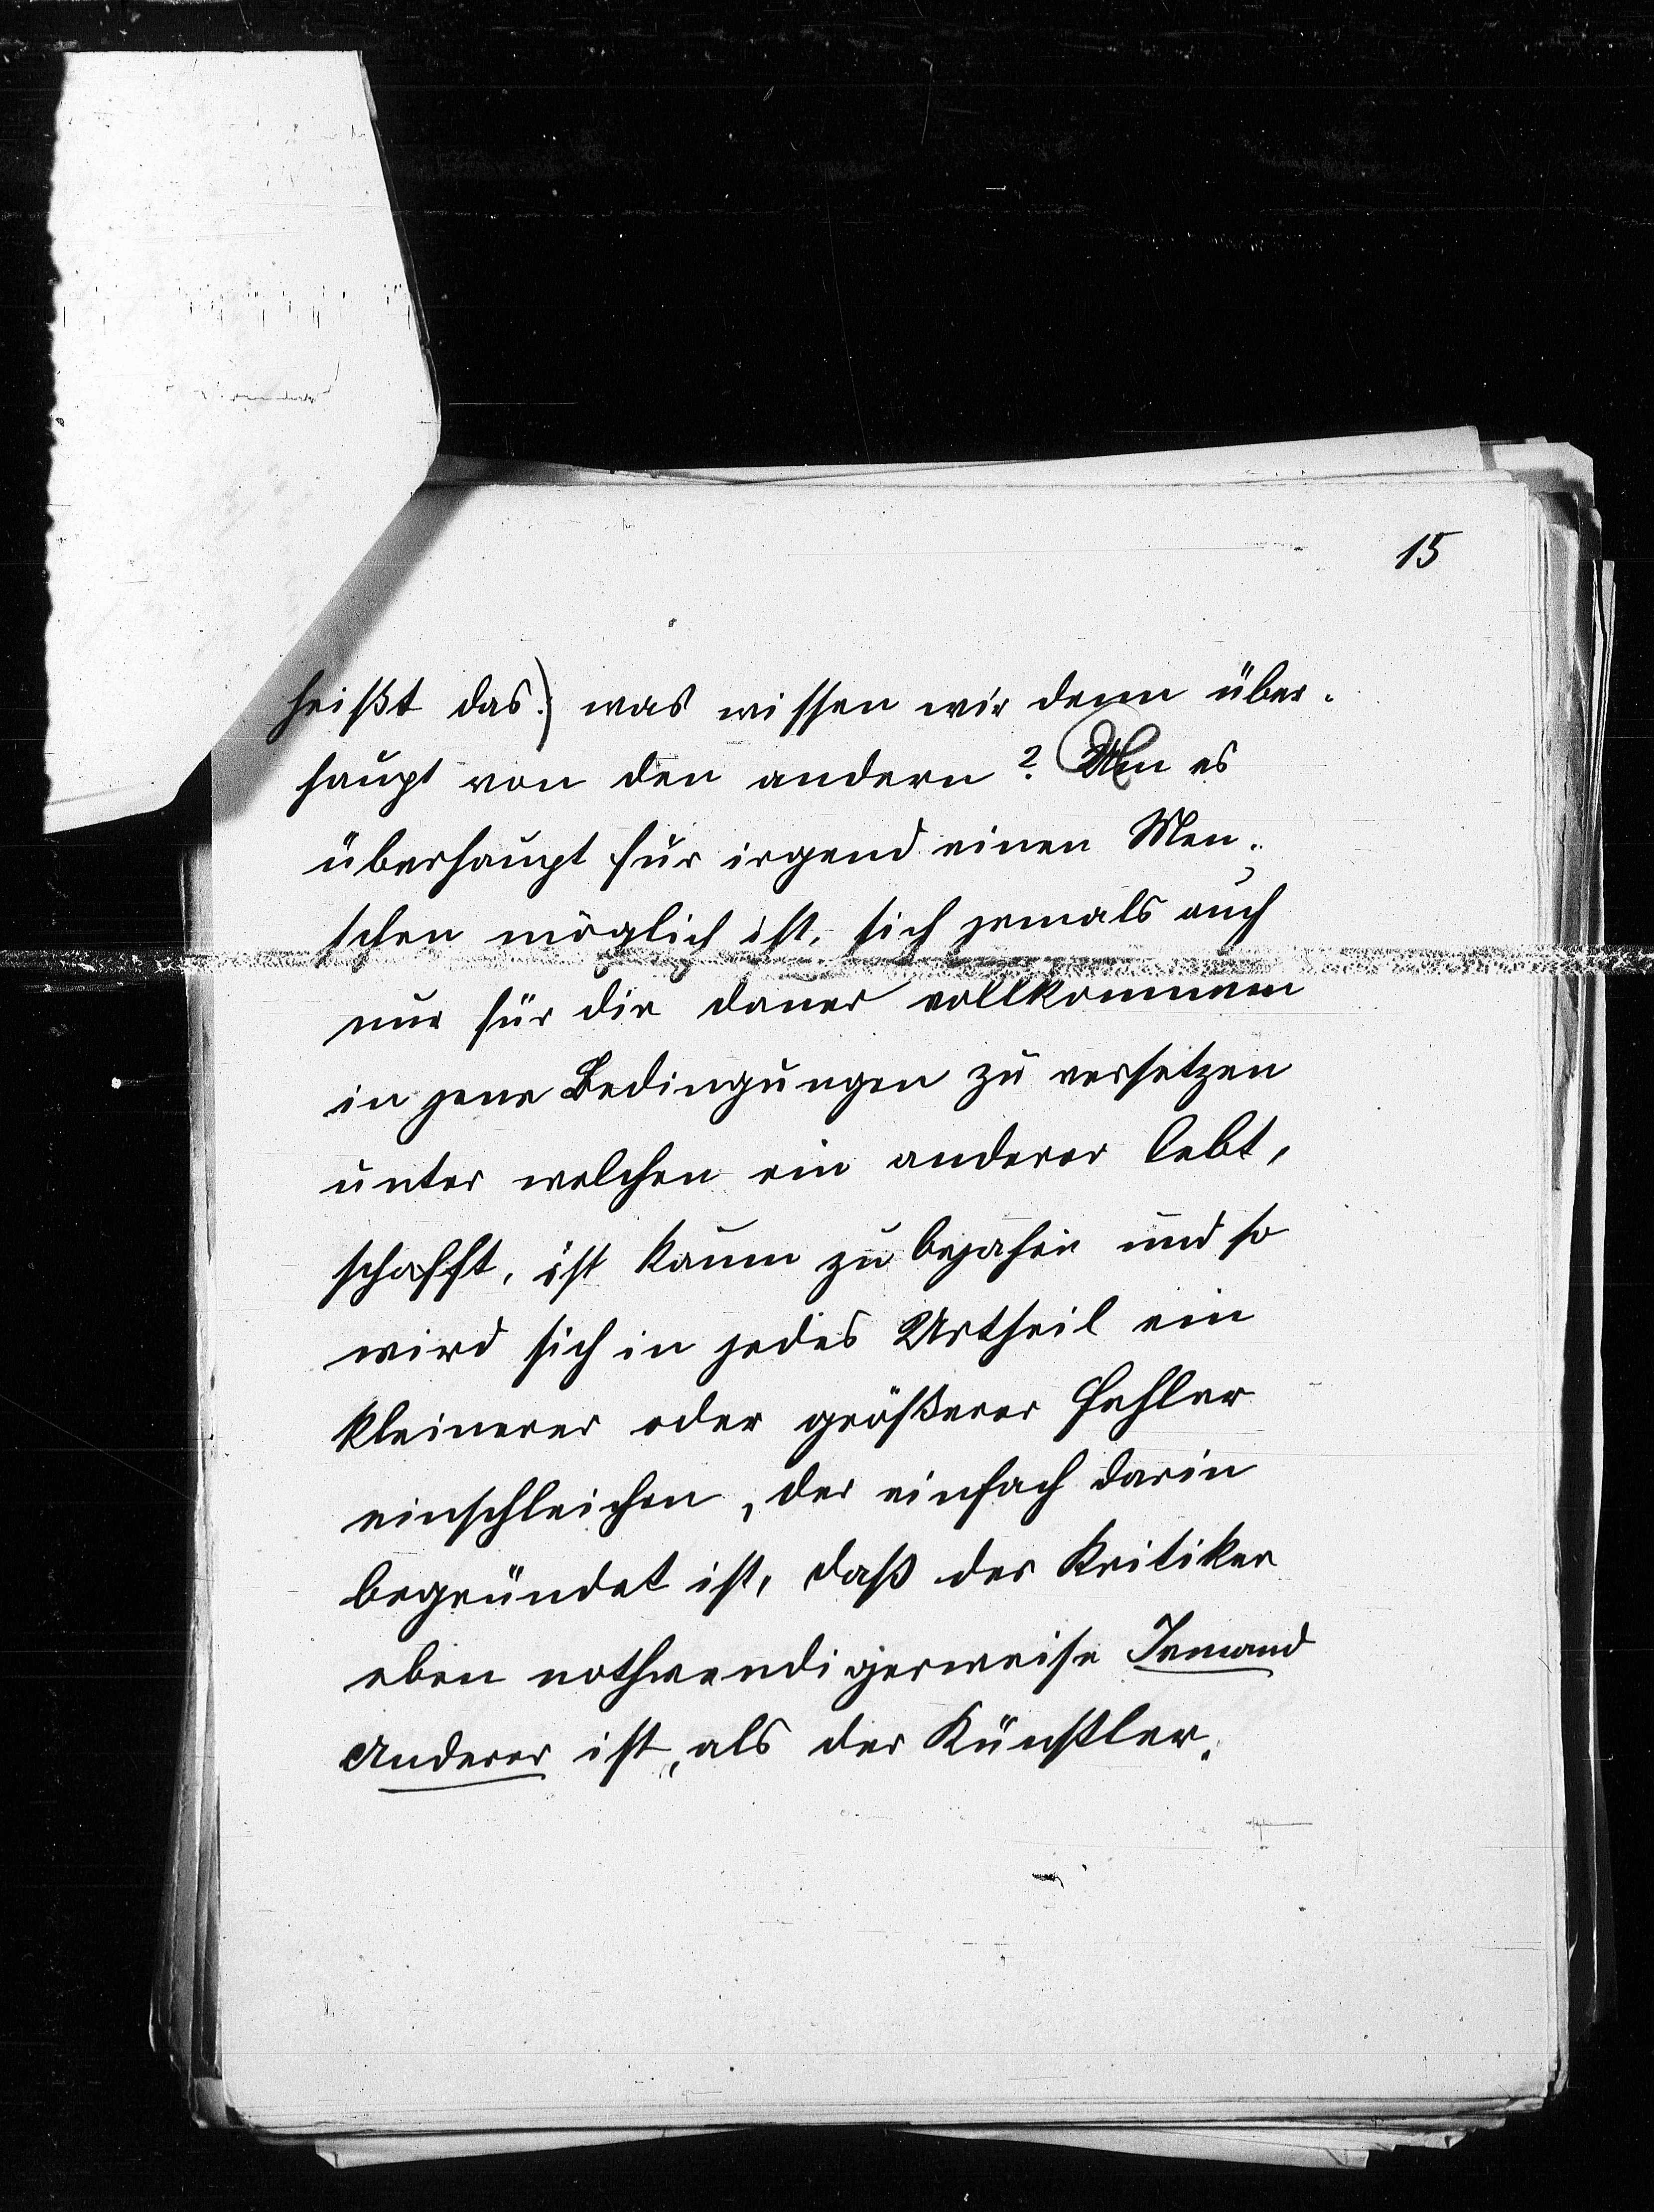 15
heißt das.) was wissen wir denn über-
haupt von den andern? es
überhaupt für irgend einen Men-
schen möglich ist, sich jemals auch
nur für die dauer vollkommen
in jene Bedingungen zu versetzen
unter welchen ein anderer lebt,
schafft, ist kaum zu bejahen und so
wird sich in jedes Urtheil ein
kleinerer oder größerer Fehler
einschleichen, der einfach darin
begründet ist, daß der Kritiker
eben nothwendigerweise Jemand
Anderer ist, als der Künstler.